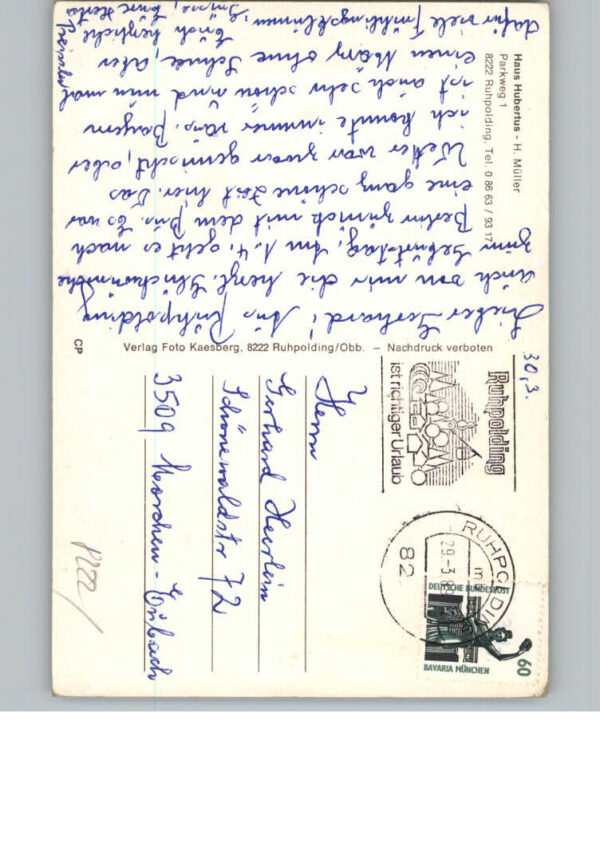 Haus Hubertus - H. Müller
Parkweg 1
8222 Ruhpolding, Tel. 0 86 63 / 93 17
30,3.
Lieber Gerhard! Aus Ruhpolding
auch von mir die herzl. Glückwünsche
zum Geburtstag. Am 1.4. geht es nach
Berlin zurück mit dem Bus. Es war
eine ganz schöne Zeit hier. Das
Wetter war zwar gemischt, aber
ich konnte immer raus. Bayern
ist auch sehr schön und nun mal
einen März ohne Schnee, aber
dafür viele Frühlingsblumen.
Euch herzliche
Grüsse, Eure Herta
CP
Verlag Foto Kaesberg, 8222 Ruhpolding/Obb. – Nachdruck verboten
Ruhpolding
ist richtiger Urlaub
RUHPOLDING
29-3.8
82
DEUTSCHE BUNDESPOST
BAYARIA MÜNCHEN
60
Herrn
Gerhard Heerlein
Schönewaldstr 72
3509 Morschen-Eubach
8222